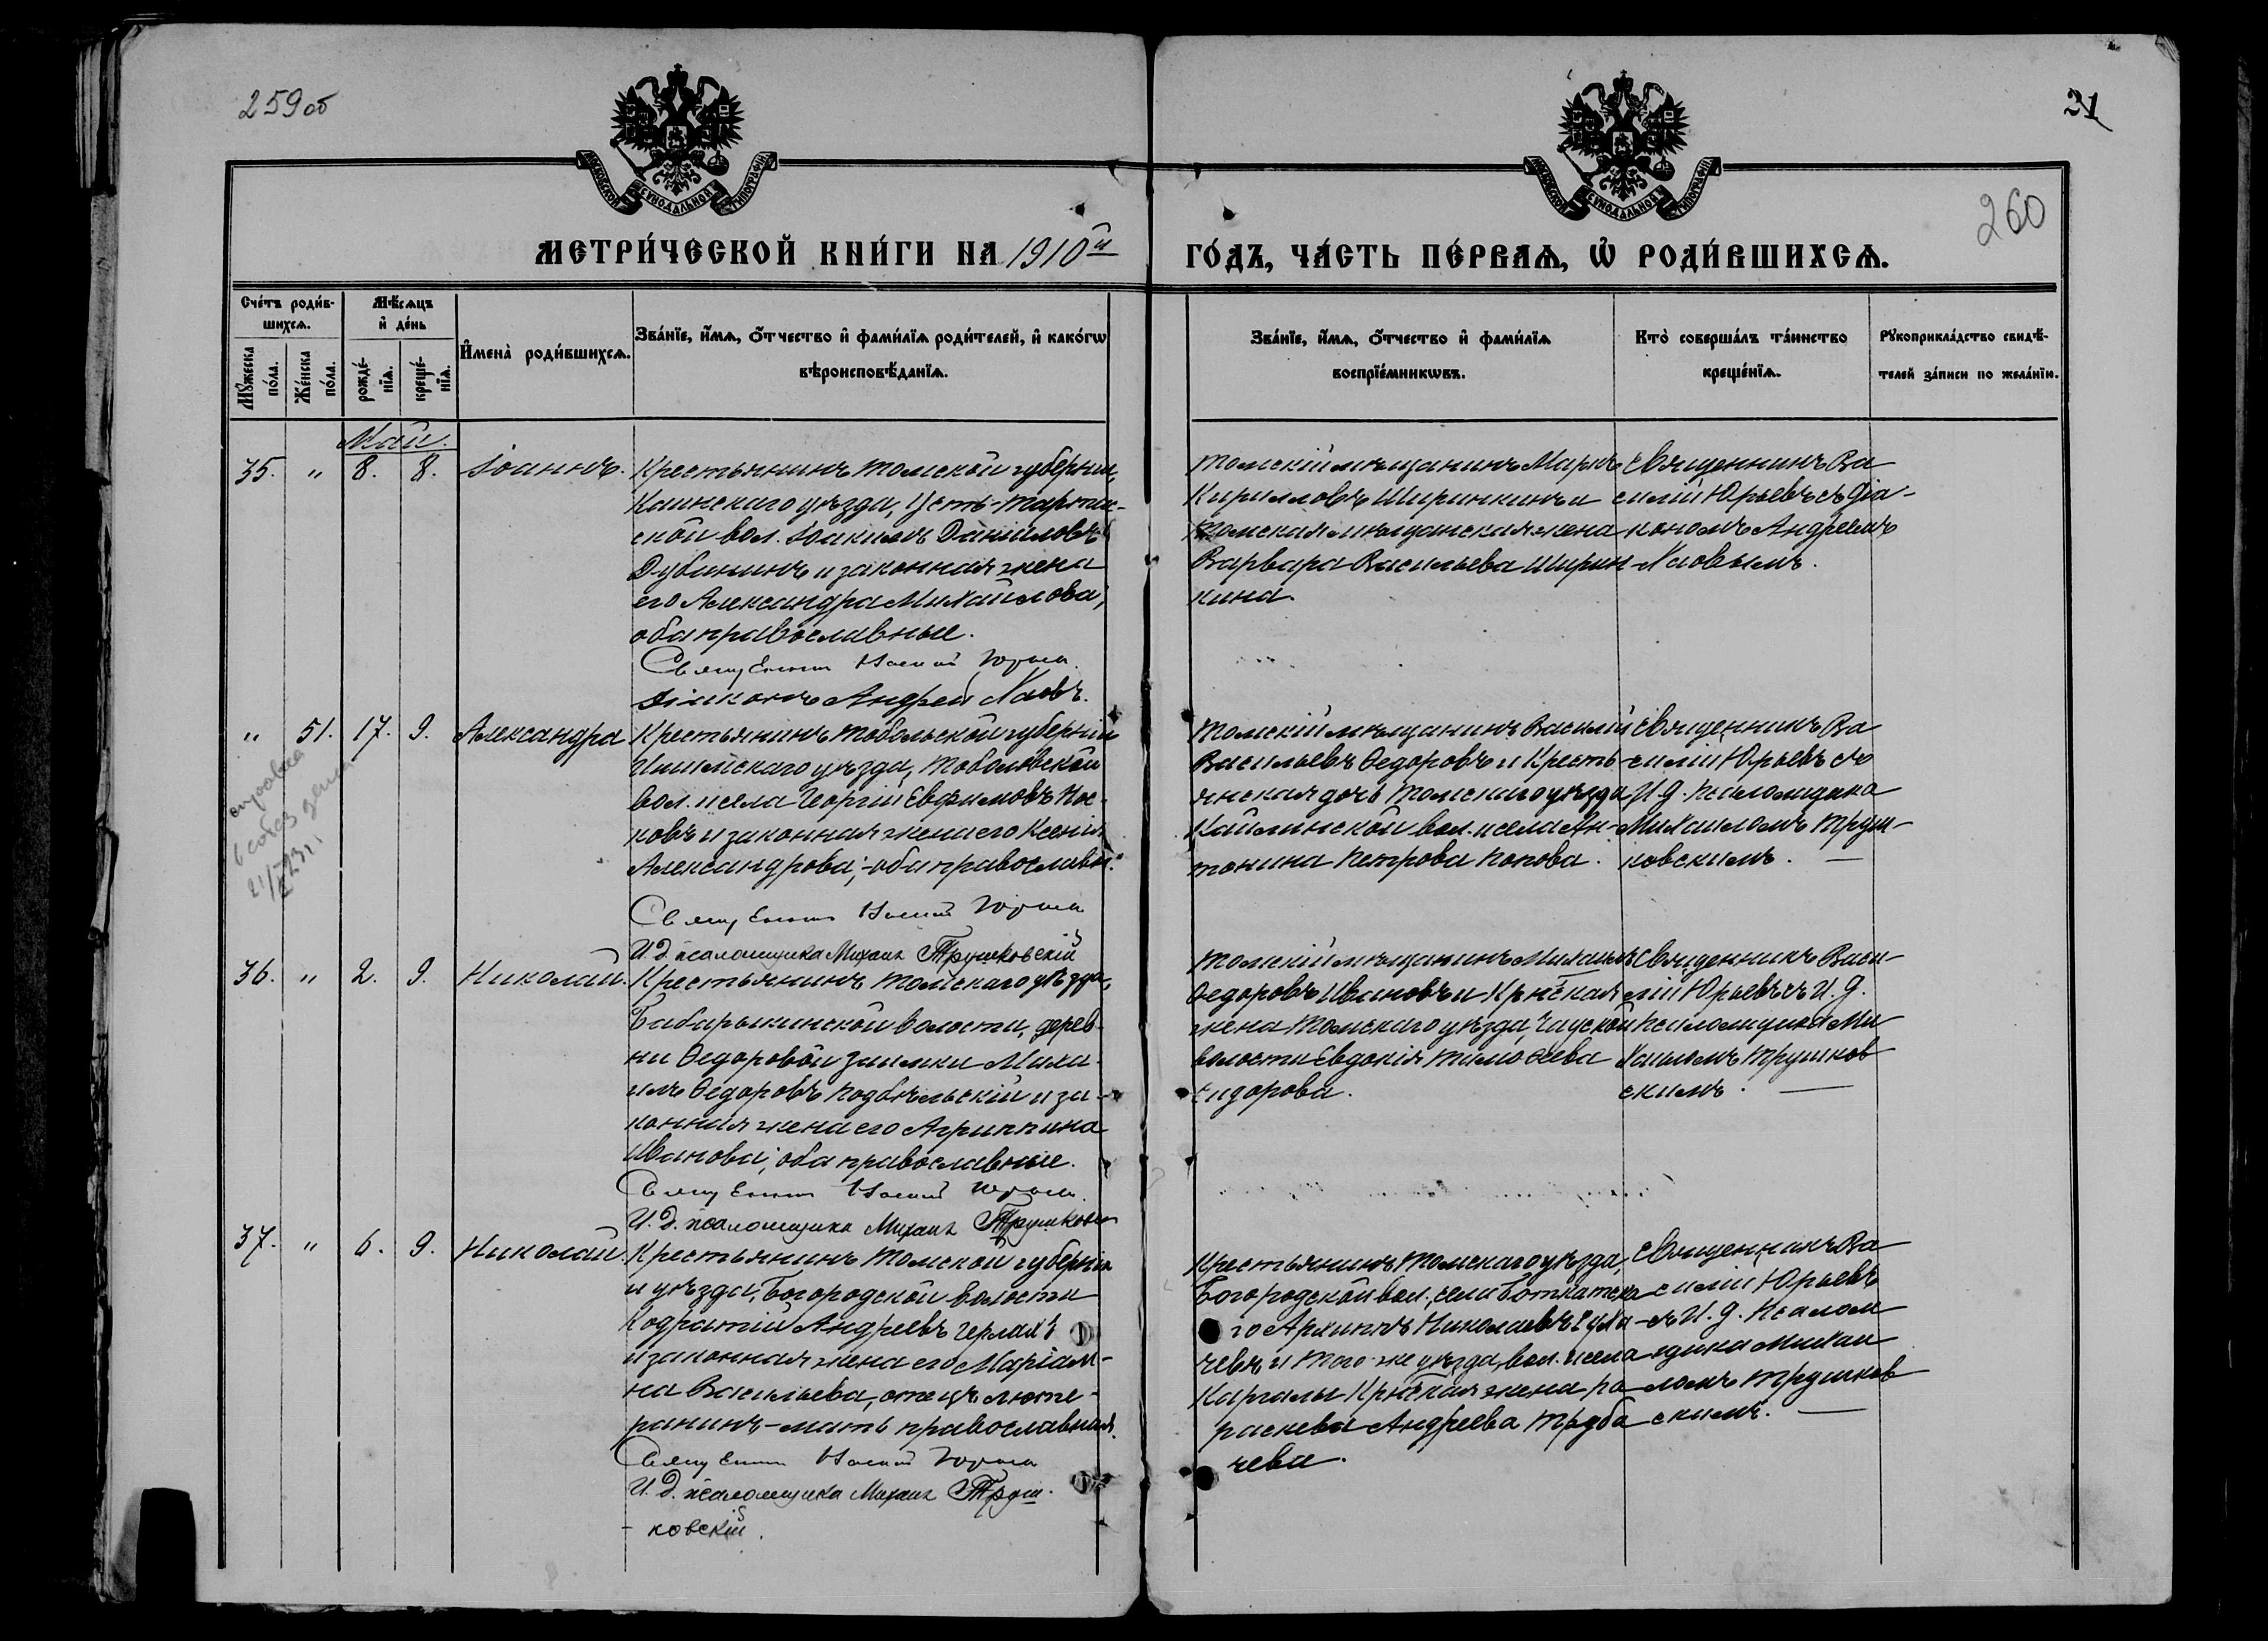 259 об
21
260
МОСКОВСКОЙ СѴНОДАЛЬНОЙ ТИПОГРАФІИ
МОСКОВСКОЙ СѴНОДАЛЬНОЙ ТИПОГРАФІИ
МЕТРИ́ЧЕСКОЙ КНИ́ГИ НА 1910й
ГО́ДЪ, ЧА́СТЬ ПЕ́РВАѦ, Ѽ РОДИ́ВШИХСѦ.
Сче́тъ роди́в-
шихсѧ.
Мꙋ́жеска
по́ла.
Же́нска
по́ла.
Мѣ́сѧцъ
и҆ де́нь
рожде́-
нїѧ.
креще́-
нїѧ.
И҆мена̀ роди́вшихсѧ.
Зва́нїе, и҆́мѧ, ѻ҆́тчество и҆ фами́лїѧ роди́телей, и҆ како́гѡ
вѣроисповѣ́данїѧ.
Зва́нїе, и҆́мѧ, ѻ҆́тчество и҆ фами́лїѧ
воспрїе́мникѡвъ.
Кто̀ соверша́лъ та́инство
креще́нїѧ.
Рꙋкоприкла́дство свидѣ́-
телей за́писи по жела́нїю.
Май.
35. " 8. 8. Іоаннъ.
Крестьянинъ Томской губерніи,
Каинскаго уѣзда, Усть-Тартас-
ской вол. Іоакимъ Даниловъ
Дубининъ и законная жена
его Александра Михайлова,
оба православные.
Священникъ Василій Юрьевъ
Діаконъ Андрей Хаовъ.
Томскій мѣщанинъ Маркъ
Кирилловъ Ширинкинъ и
Томская мѣщанская жена
Варвара Васильева Ширин
кина.
Священникъ Ва
силій Юрьевъ съ Діа-
кономъ Андреемъ
Хаовымъ.
" 51. 17. 9. Александра
Крестьянинъ Тобольской губерніи
Ишимскаго уѣзда, Тоболовской
вол. и села Георгій Евфимовъ Нос-
ковъ и законная жена его Ксенія
Александрова; оба православн.
Священникъ Василій Юрьевъ
И. д. псаломщика Михаилъ Трушковскій
Томскій мѣщанинъ Василій
Васильевъ Ѳедоровъ и Кресть-
янская дочь Томскаго уѣзда
Кайлинской вол. и села Ан-
тонина Петрова Попова.
Священникъ Ва
силій Юрьевъ съ
И. д. псаломщика
Михаиломъ Труш-
ковскимъ.
36. " 2. 9. Николай.
Крестьянинъ Томскаго уѣзда,
Бабарыкинской волости, дерев
ни Ѳедоровой Заимки Миха-
илъ Ѳедоровъ Подбѣльскій и за-
конная жена его Агриппина
Иванова; оба православные.
Священникъ Василій Юрьевъ
И. д. псаломщика Михаилъ Трушковс
Томскій мѣщанинъ Михаилъ
Ѳедоровъ Ивановъ и Кр-нская
жена Томскаго уѣзда, Чауской
волости Евдокія Тимоѳеева
Сидорова.
Священникъ Васи
лій Юрьевъ съ И. д.
псаломщика Ми
хаиломъ Трушков
скимъ.
37. " 6. 9. Николай.
Крестьянинъ Томской губерніи
и уѣзда, Богородской волости
Кодратій Андреевъ Герлахъ
и законная жена его Маріам-
на Васильева, отецъ люте-
ранинъ - мать православная.
Священникъ Василій Юрьевъ
И. д. псаломщика Михаилъ Труш-
ковскій.
Крестьянинъ Томскаго уѣзда
Богородской вол., села
го Архиппъ Николаевъ
чевъ и того-же уѣзда, вол. и села
Каргалы Кр-нская жена Па
раскева Андреева Труба
чева.
Священникъ Ва
силій Юрьевъ
съ И. д. псалом
щика Михаи
ломъ Трушков
скимъ.